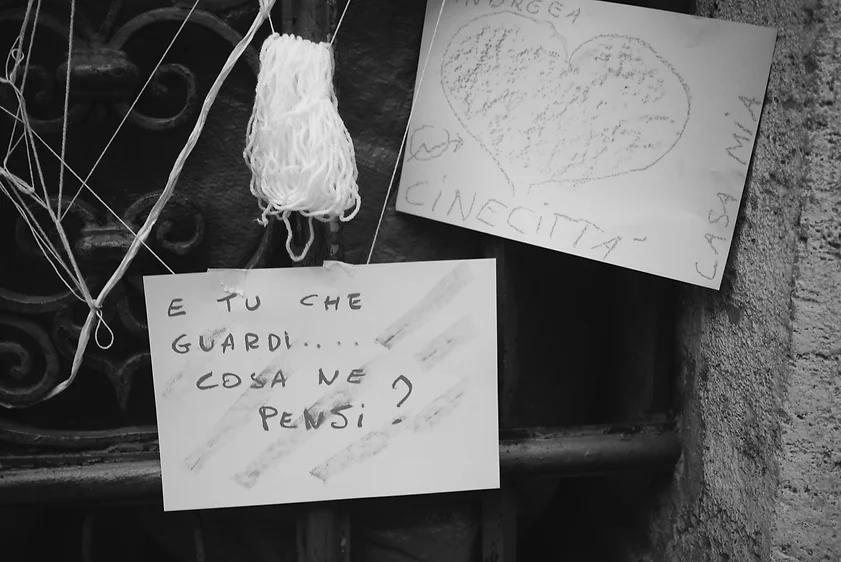 ANDREEA
CINECITTA'
CASA MIA
E TU CHE
GUARDI.....
COSA NE
PENSI?